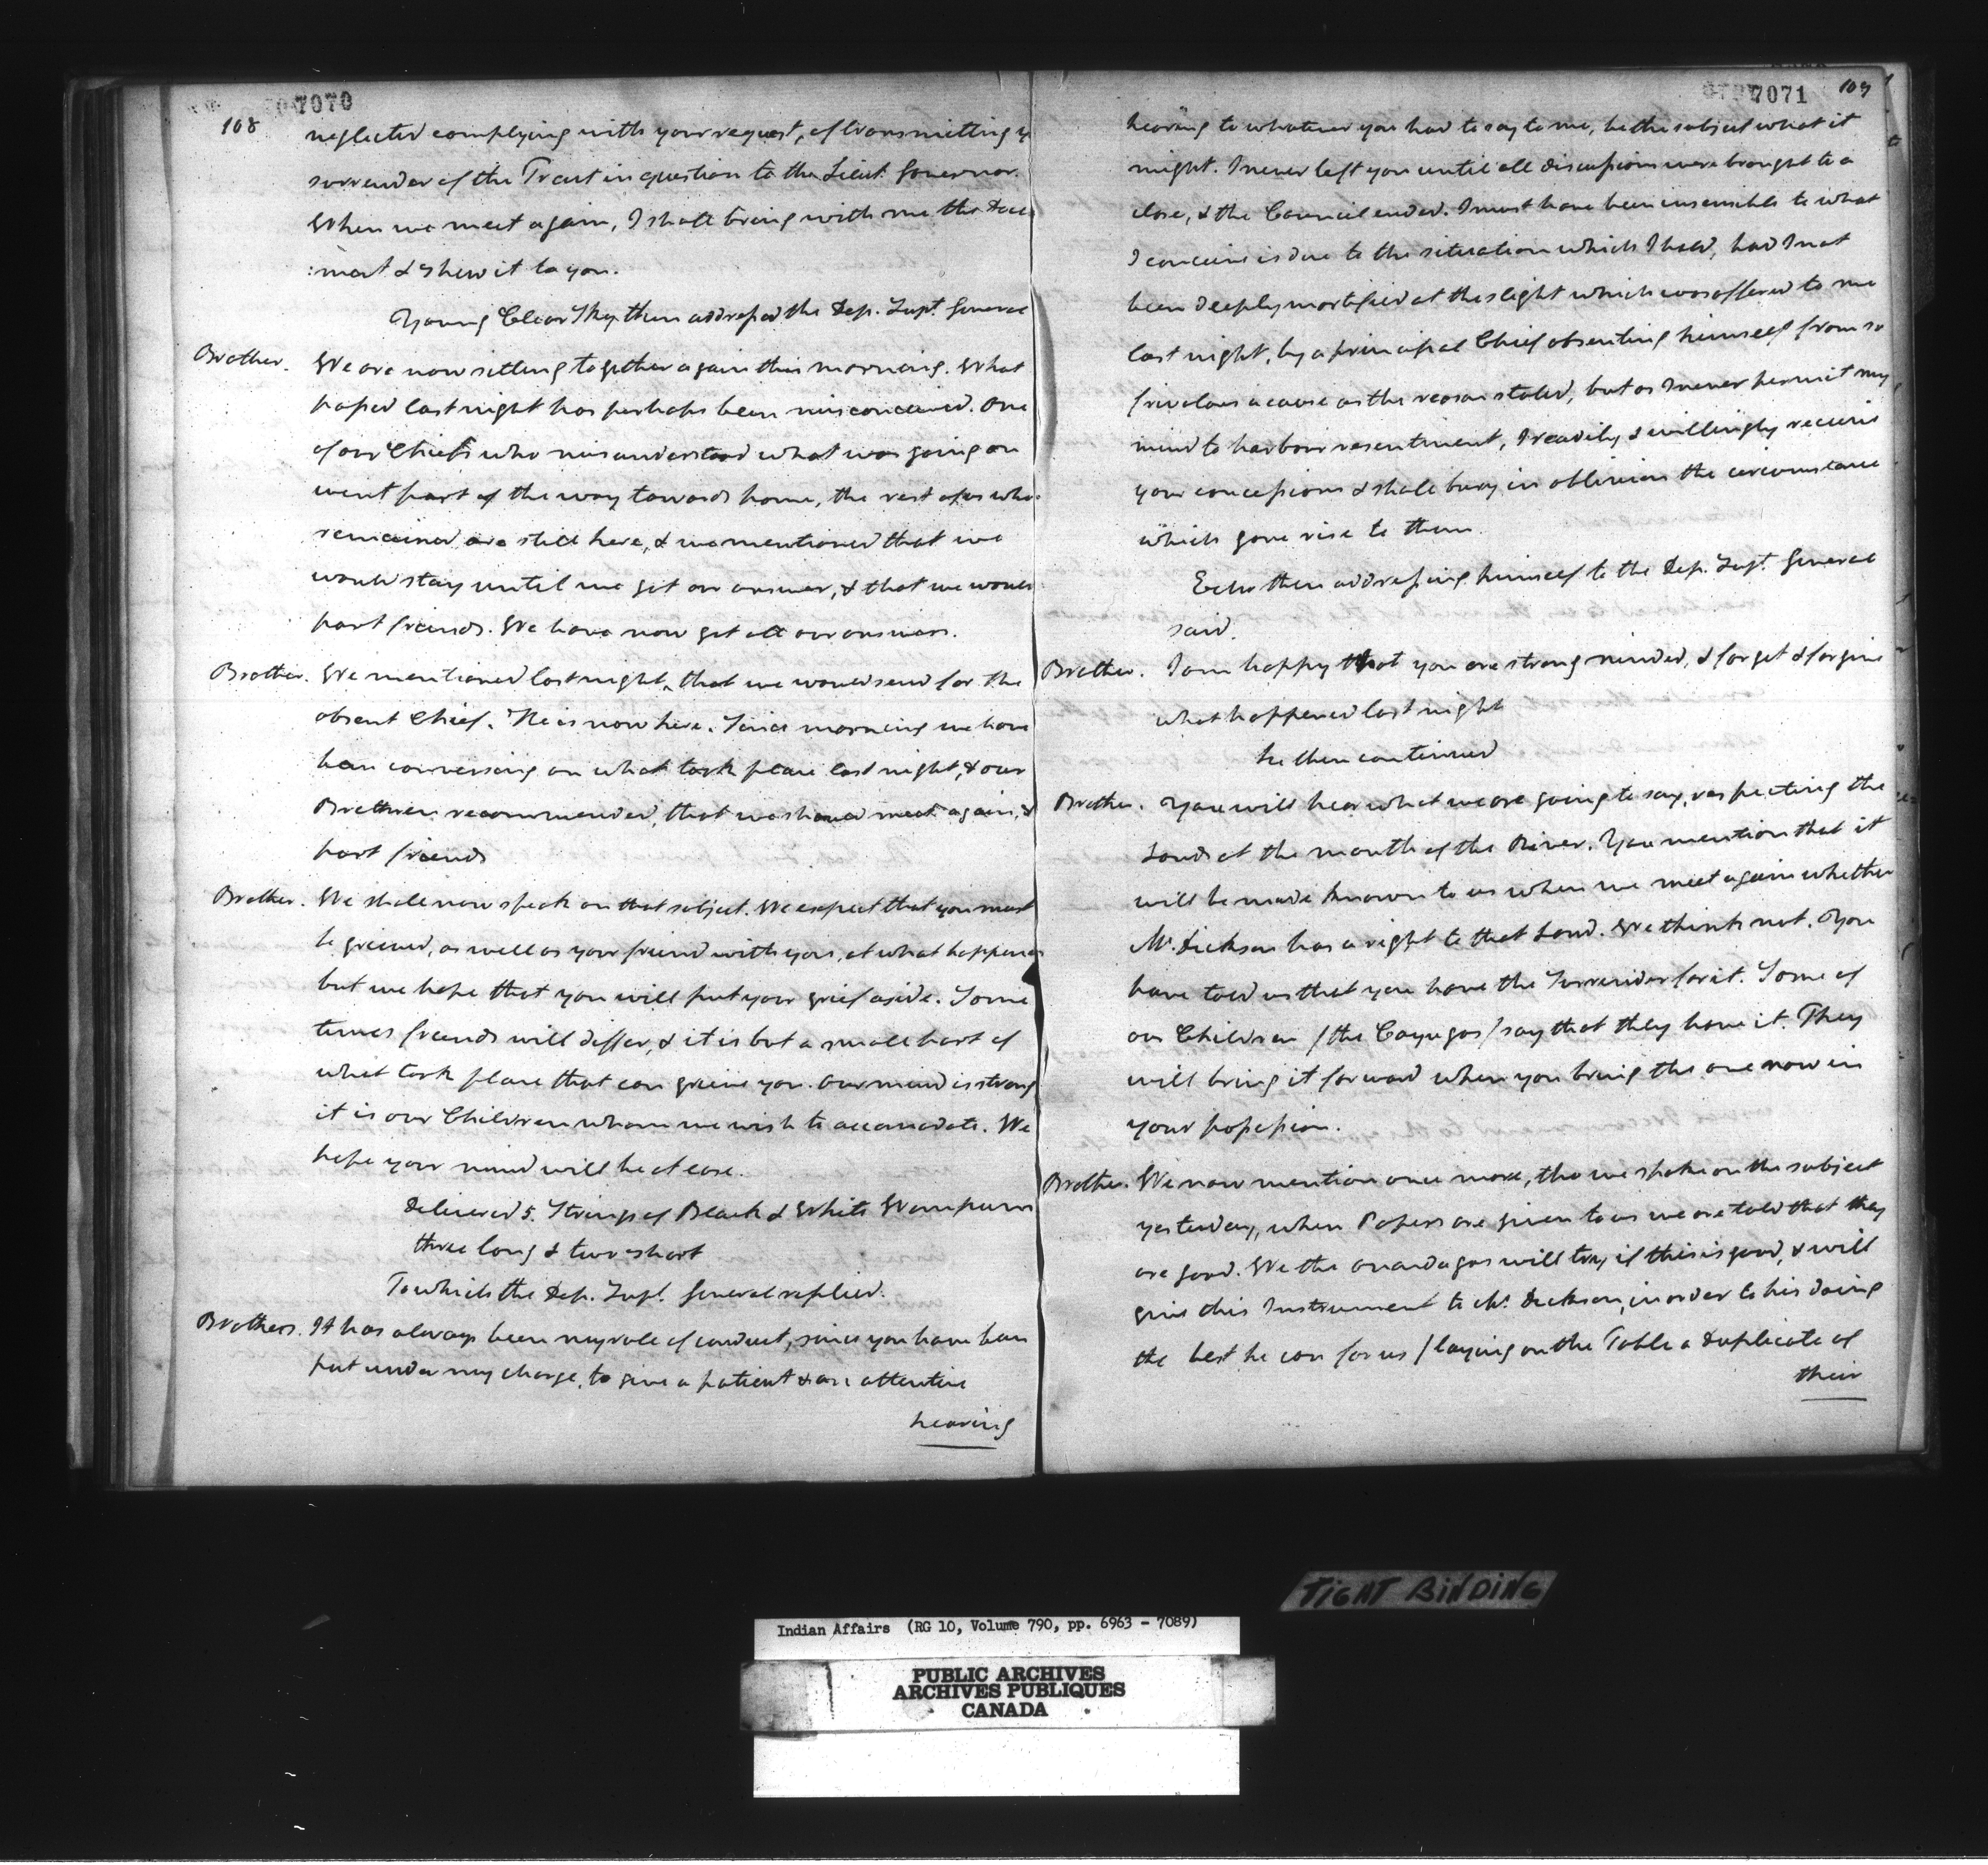 7070
108
neglected complying with your request, of transmitting y
surrender of the Tract in question to the Lieut. Governor.
When we meet again, I shall bring with me the Docu
:ment & shew it to you.
Young Clear Sky then addressed the Dep. Supt. General
Brother. We are now sitting together again this morning. What
passed last night has perhaps been misconceived. One
of our Chiefs who misunderstood what was going on
went part of the way towards home, the rest of us who
remained are still here, & we mentioned that we
would stay until we got an answer, & that we would
part friends. We have now got all our answers.
Brother. We mentioned last night, that we would send for the
absent Chief. He is now here. Since morning we have
been conversing on what took place last night, & our
Brethren recommended, that we should meet again, &
part friends
Brother. We shall now speak on that subject. We expect that you must
be grieved, as well as your friend with you, at what happened
but we hope that you will put your grief aside. Some
times friends will differ, & it is but a small part of
what took place that can grieve you. Our mind is strong
it is our Children whom we wish to accomodate. We
hope your mind will be at ease.
Delivered 5. Strings of Black & White Wampum
three long & two short
To which the Dep. Supt. General replied.
Brothers. It has always been my rule of conduct, since you have been
put under my charge, to give a patient & an attentive
hearing
7071
109
hearing to whatever you had to say to me, be the subject what it
might. I never left you until all discussions were brought to a
close, & the Council ended. I must have been insensible to what
I conceive is due to the situation which I hold, had I not
been deeply mortified at the slight which was offered to me
last night, by a principal Chief absenting himself from so
frivolous a cause as the reason stated, but as I never permit my
mind to harbour resentment, I readily & willingly receive
your concessions & shall bury in oblivion the circumstance
which gave rise to them.
Echo then addressing himself to the Dep. Supt. General
said.
Brother. I am happy that you are strong minded, & forget & forgive
what happened last night
he then continued
Brother. You will hear what we are going to say, respecting the
Lands at the mouth of the River. You mention that it
will be made known to us when we meet again whether
Mr. Dickson has a right to that Land. We think not. You
have told us that you have the Surrender for it. Some of
our Children /the Cayugas/ say that they have it. They
will bring it forward when you bring the one now in
your possession.
Brother. We now mention once more, tho we spoke on the subject
yesterday, when Papers are given to us we are told that they
are good. We the Onondagas will try if this is good, & will
give this Instrument to Mr. Dickson, in order to his doing
the best he can for us /laying on the Table a Duplicate of
their
TIGHT BINDING
Indian Affairs (RG 10, Volume 790, pp. 6963 - 7089)
PUBLIC ARCHIVES
ARCHIVES PUBLIQUES
CANADA